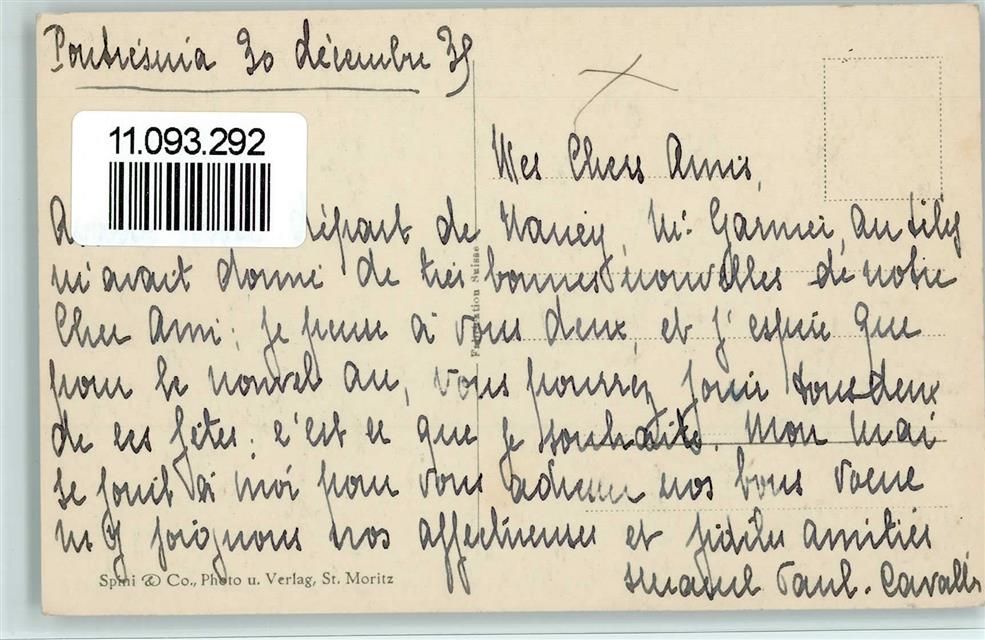 Pontrésina 30 décembre 35
11.093.292
Mes Chers Amis,
départ de Nancy, Mr Garnier,
m'avait donné de très bonnes nouvelles de notre
Cher Ami; je pense à vous deux, et j'espère que
pour le nouvel an, vous pourrez jouir tous deux
de ces fêtes: c'est ce que je souhaite. Mon Mari
se joint à moi pour vous adresser nos bons voeux
joignons nos affectueuses et fidèles amitiés
Paul. Cavallé
Fabrication Suisse
Spini & Co., Photo u. Verlag, St. Moritz